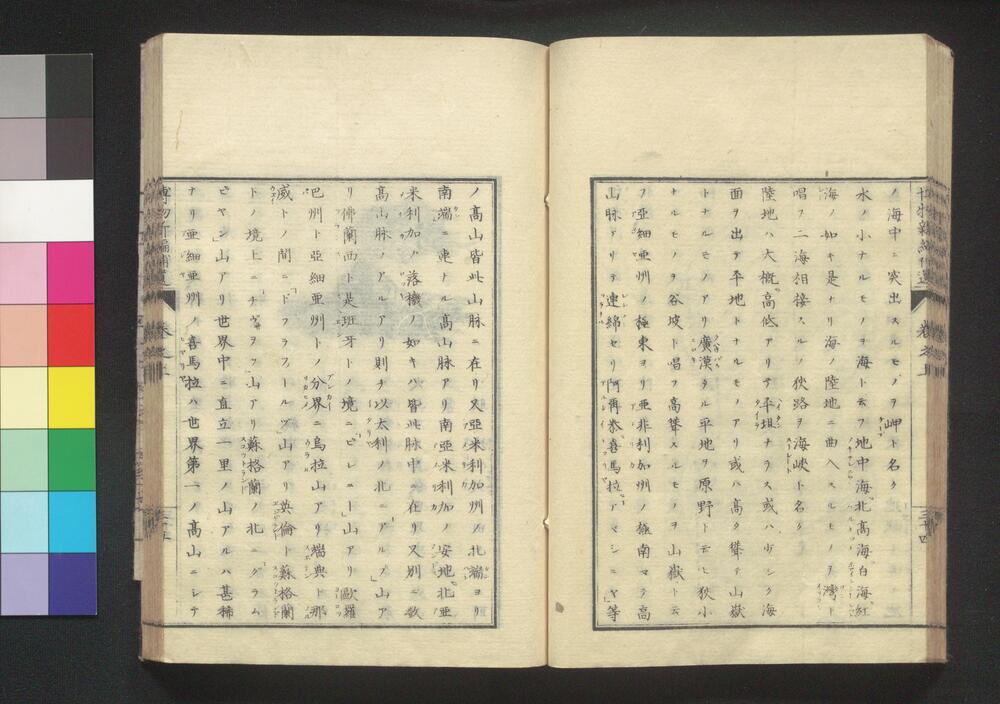 ノ海中ニ突出スルモノヲ岬ト名ク
水ノ小ナルモノヲ海ト云フ地中海北髙海白海紅
海ノ如キ是ナリ海ノ陸地ニ曲入スルモノヲ灣ト
唱フ二海相接スルノ狄路ヲ海峽ト名ク
陸地ハ大概高低アリテ平坦ナラス或ハ少シク海
面ヲ出テ平地トナルモノアリ或ハ高ク聳テ山嶽
トナルモノアリ廣漠タル平地ヲ原野ト云ヒ狄小
ナルモノヲ谷坡ト唱フ高聳スルモノヲ山嶽ト云
フ亞細亞州ノ極東ヨリ亞非利加州ノ極南マテ高
山脉アリテ連綿セリ阿爾泰喜馬拉アマシニヤ等
卷之上
三十四
ノ髙山皆此山脉ニ在リ又亞米利加州ノ北端ヨリ
南端ニ連ナル髙山脉アリ南亞米利加ノ安地北亞
米利加ノ落機ノ如キハ皆此脉中ニ在リ又別ニ数
髙山脉ノアルアリ則チ以太利ノ北ニアルプ山ア
リ佛蘭西ト是班牙トノ境ニピレニー山アリ歐羅
巴州ト亞細亞州トノ分界ニ烏拉山アリ瑞典ト那
威トノ間ニドフラフトルツ山アリ英倫ト蘇格蘭
トノ境上ニチヴヲフ山アリ蘇格蘭ノ北ニグラム
ピヤン山アリ世界中ニ直立一里ノ山アルハ甚稀
ナリ亞細亞州ノ喜馬拉ハ世界第一ノ髙山ニシテ
博物新編補遺
卷之上
三十五